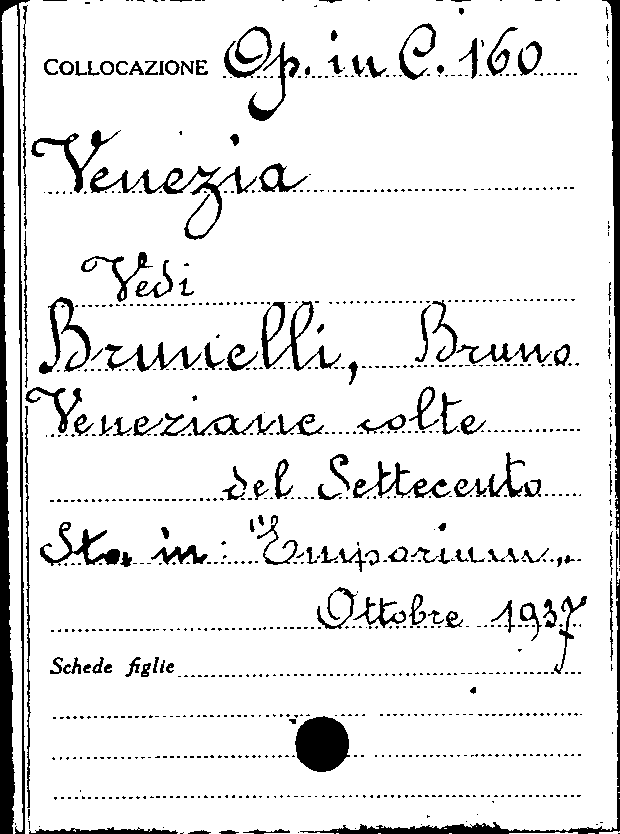 COLLOCAZIONE Op. in C. 160
Venezia
Vedi
Brunelli, Bruno
Veneziane colte
del Settecento
Sta in: "Emporium„
Ottobre 1937
Schede figlie